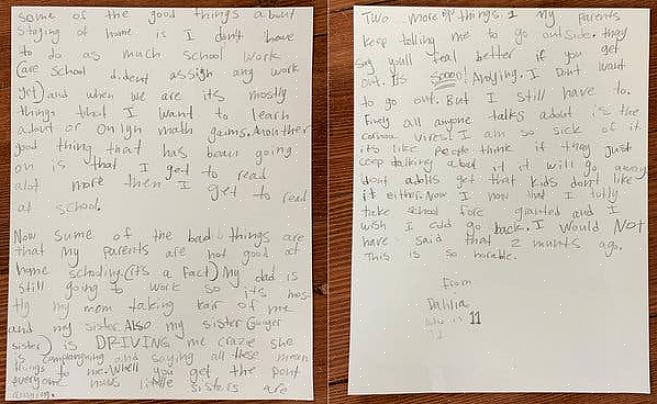 some of the good things about
staying at home is I don't have
to do as much school work
(are school dident assign any work
yet) and when we are its mostly
things that I want to learn
about or onlyn math gaims. Another
good thing that has beun going
on is that I get to read
alot more then I get to read
at school.
Now sume of the bad things are
that my parents are not good at
home schooling. (it's a fact) My dad is
still going to work so its mos-
tly my mom taking kair of me
and my sister. Also my sister
sister) is DRIVING me crazie she
is complangning and saying all these mean
things to me. Whell you get the pont
everyone nows little sisters are
anoying.
Two more things. 1 my parents
keep telling me to go outside. they
say youll feal better if you get
out. Its Soooo! Anoying. I Dont want
to go out. But I still have to.
Finely all anyone talks about is the
corona vires! I am so sick of it
its like people think if they just
ceep talking about it it will go away
dont adolts get that kids dont like
it either. Now I now that I tully
take school fore granted and I
wish I culd go back. I would NOT
have said that 2 munts ago.
This is so horable.
from
Dahlia
who is 11